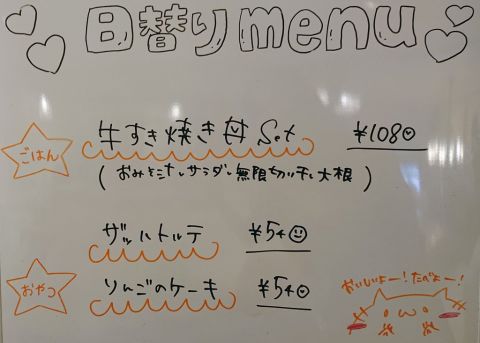 日替りmenu
ごはん
牛すき焼き丼 Set ¥1080
(おみそ汁、サラダ、無限切り干し大根)
ザッハトルテ ¥540
おやつ
りんごのケーキ ¥540
おいしいよー!たべよー!